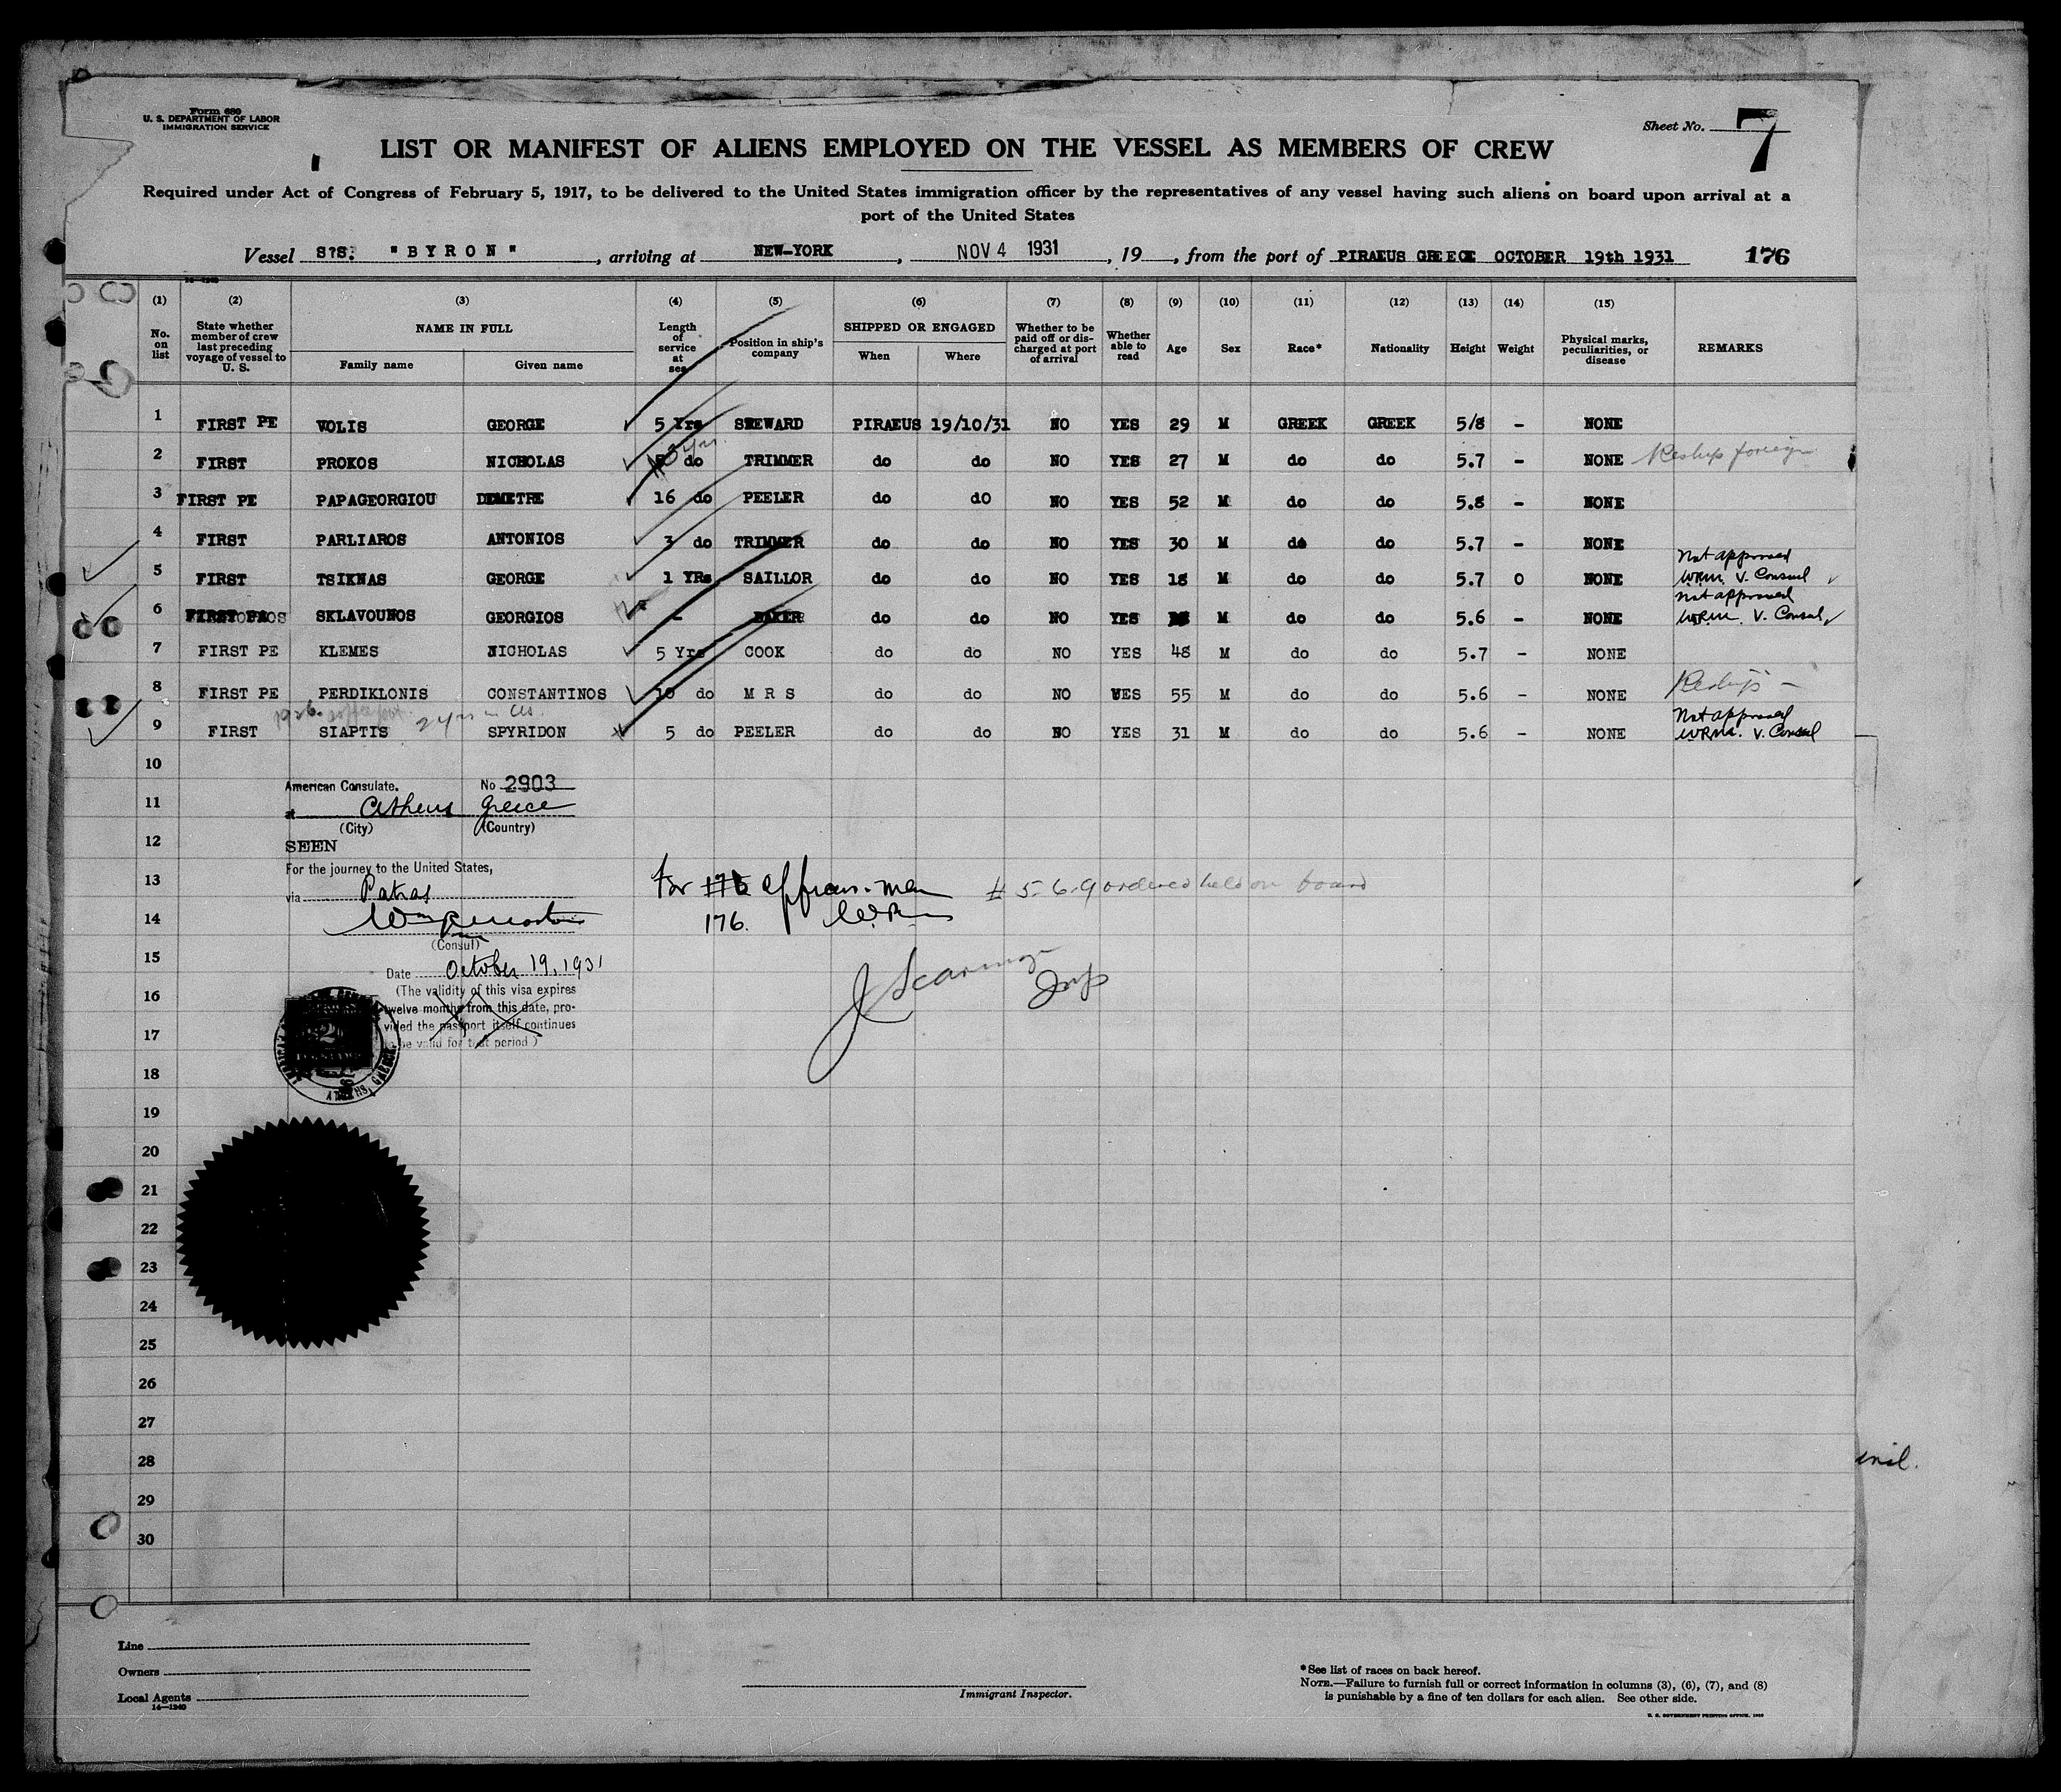 Form 689
U. S. DEPARTMENT OF LABOR
IMMIGRATION SERVICE
Sheet No. 7
LIST OR MANIFEST OF ALIENS EMPLOYED ON THE VESSEL AS MEMBERS OF CREW
Required under Act of Congress of February 5, 1917, to be delivered to the United States immigration officer by the representatives of any vessel having such aliens on board upon arrival at a
port of the United States
Vessel S?S. "BYRON", arriving at NEW-YORK, NOV 4 1931, 19, from the port of PIRAEUS GREECE OCTOBER 19th 1931 176
(1) (2) (3) (4) (5) (6) (7) (8) (9) (10) (11) (12) (13) (14) (15)
No. on list State whether member of crew last preceding voyage of vessel to U. S. NAME IN FULL Family name Given name Length of service at sea Position in ship's company SHIPPED OR ENGAGED When Where Whether to be paid off or discharged at port of arrival Whether able to read Age Sex Race* Nationality Height Weight Physical marks, peculiarities, or disease REMARKS
1 FIRST PE VOLIS GEORGE 5 Yrs STEWARD PIRAEUS 19/10/31 NO YES 29 M GREEK GREEK 5/8 - NONE
2 FIRST PROKOS NICHOLAS do TRIMMER do do NO YES 27 M do do 5.7 - NONE Reship foreign
3 FIRST PE PAPAGEORGIOU DEMETRE 16 do PEELER do dO NO YES 52 M do do 5.8 - NONE
4 FIRST PARLIAROS ANTONIOS 3 do TRIMMER do do NO YES 30 M do do 5.7 - NONE
5 FIRST TSIKNAS GEORGE 1 YRs SAILLOR do do NO YES 18 M do do 5.7 0 NONE Not approved WRM. V. Consul
6 SKLAVOUNOS GEORGIOS - BAKER do do NO YES M do do 5.6 - NONE Not approved WRM. V. Consul
7 FIRST PE KLEMES NICHOLAS 5 Yrs COOK do do NO YES 48 M do do 5.7 - NONE
8 FIRST PE PERDIKLONIS CONSTANTINOS 10 do M R S do do NO YES 55 M do do 5.6 - NONE Reship -
9 FIRST SIAPTIS SPYRIDON 5 do PEELER do do NO YES 31 M do do 5.6 - NONE Not approved WRM. V. Consul
10
American Consulate. No 2903
11 at Athens Greece
(City) (Country)
12 SEEN
For the journey to the United States,
13 via Patras For 176 men # 5-6-9 ordered held on board
14 176.
(Consul)
15 Date October 19, 1931
16 (The validity of this visa expires
twelve months from this date, pro-
17 vided the passport itself continues
to be valid for that period)
18
19
20
21
22
23
24
25
26
27
28
29
30
Line
Owners
Local Agents
14—1240
Immigrant Inspector.
*See list of races on back hereof.
NOTE.—Failure to furnish full or correct information in columns (3), (6), (7), and (8)
is punishable by a fine of ten dollars for each alien. See other side.